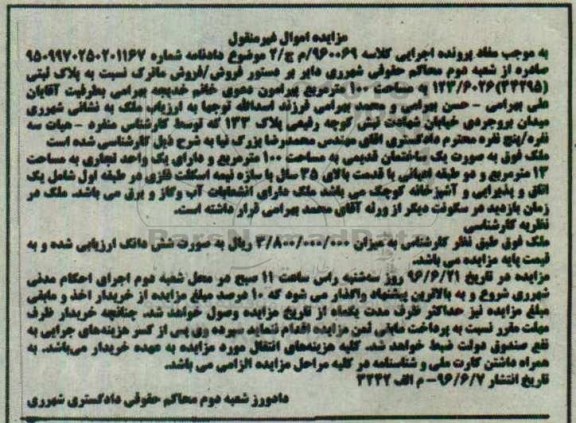 مزایده اموال غیرمنقول
به موجب مفاد پرونده اجرایی کلاسه ۹۶۰۰۶۹/م ج/۲ موضوع دادنامه شماره ۹۵۰۹۹۷۰۲۵۰۲۰۱۱۶۷
صادره از شعبه دوم محاکم حقوقی شهرری دایر بر دستور فروش/فروش ماترک نسبت به پلاک ثبتی
۱۲۳/۶۰۲۶(۲۳۲۹۵) به مساحت ۱۰۰ مترمربع پیرامون دعوی خانم خدیجه بهرامی بطرفیت آقایان
علی بهرامی - حسن بهرامی و محمد بهرامی فرزند اسدالله توجها به ارزیابی ملک به نشانی شهرری
میدان بروجردی خیابان شهادت نبش کوچه رفیعی پلاک ۱۳۳ که توسط کارشناس منفرد - هیات سه
نفره/پنج نفره محترم دادگستری اقای مهندس محمدرضا بزرگ نیا به شرح ذیل کارشناسی شده است
ملک فوق به صورت یک ساختمان قدیمی به مساحت ۱۰۰ مترمربع و دارای یک واحد تجاری به مساحت
۱۳ مترمربع و دو طبقه اعیانی با قدمت بالای ۳۵ سال با سازه نیمه اسکلت فلزی در طبقه اول شامل یک
اتاق و پذیرایی و آشپزخانه کوچک می باشد ملک دارای انشعابات آب وگاز و برق می باشد. ملک در
زمان بازدید در سکونت دیگر از ورثه آقای محمد بهرامی قرار داشته است.
نظریه کارشناسی
ملک فوق طبق نظر کارشناسی به میزان ۳/۸۰۰/۰۰۰/۰۰۰ ریال به صورت شش دانگ ارزیابی شده و به
قیمت پایه مزایده می باشد.
مزایده در تاریخ ۹۶/۶/۲۱ روز سه‌شنبه راس ساعت ۱۱ صبح در محل شعبه دوم اجرای احکام مدنی
شهرری شروع و به بالاترین پیشنهاد واگذار می شود که ۱۰ درصد مبلغ مزایده از خریدار اخذ و مابقی
مبلغ مزایده نیز حداکثر ظرف مدت یکماه از تاریخ مزایده وصول خواهد شد. چنانچه خریدار ظرف
مهلت مقرر نسبت به پرداخت مابقی ثمن مزایده اقدام ننماید سپرده وی پس از کسر هزینه‌های اجرایی به
نفع صندوق دولت ضبط خواهد شد. کلیه هزینه‌های انتقال مورد مزایده به عهده خریدار می‌باشد. به
همراه داشتن کارت ملی و شناسنامه در کلیه مراحل مزایده الزامی می باشد.
تاریخ انتشار ۹۶/۶/۷- م الف ۳۳۴۲
دادورز شعبه دوم محاکم حقوقی دادگستری شهرری
ParsNamadData